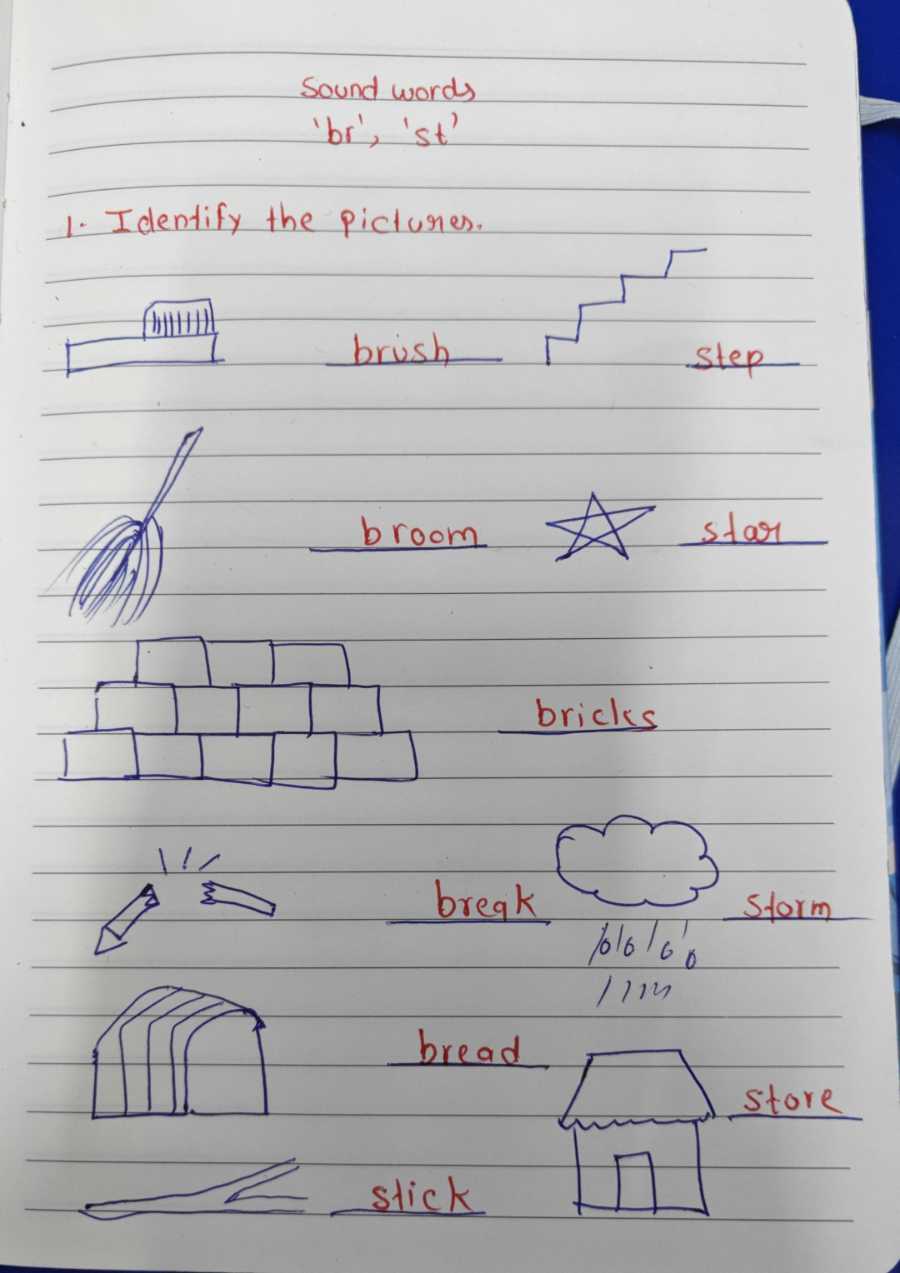 Sound words
'br', 'st'
1. Identify the pictures.
brush step
broom star
bricks
break storm
bread
store
stick